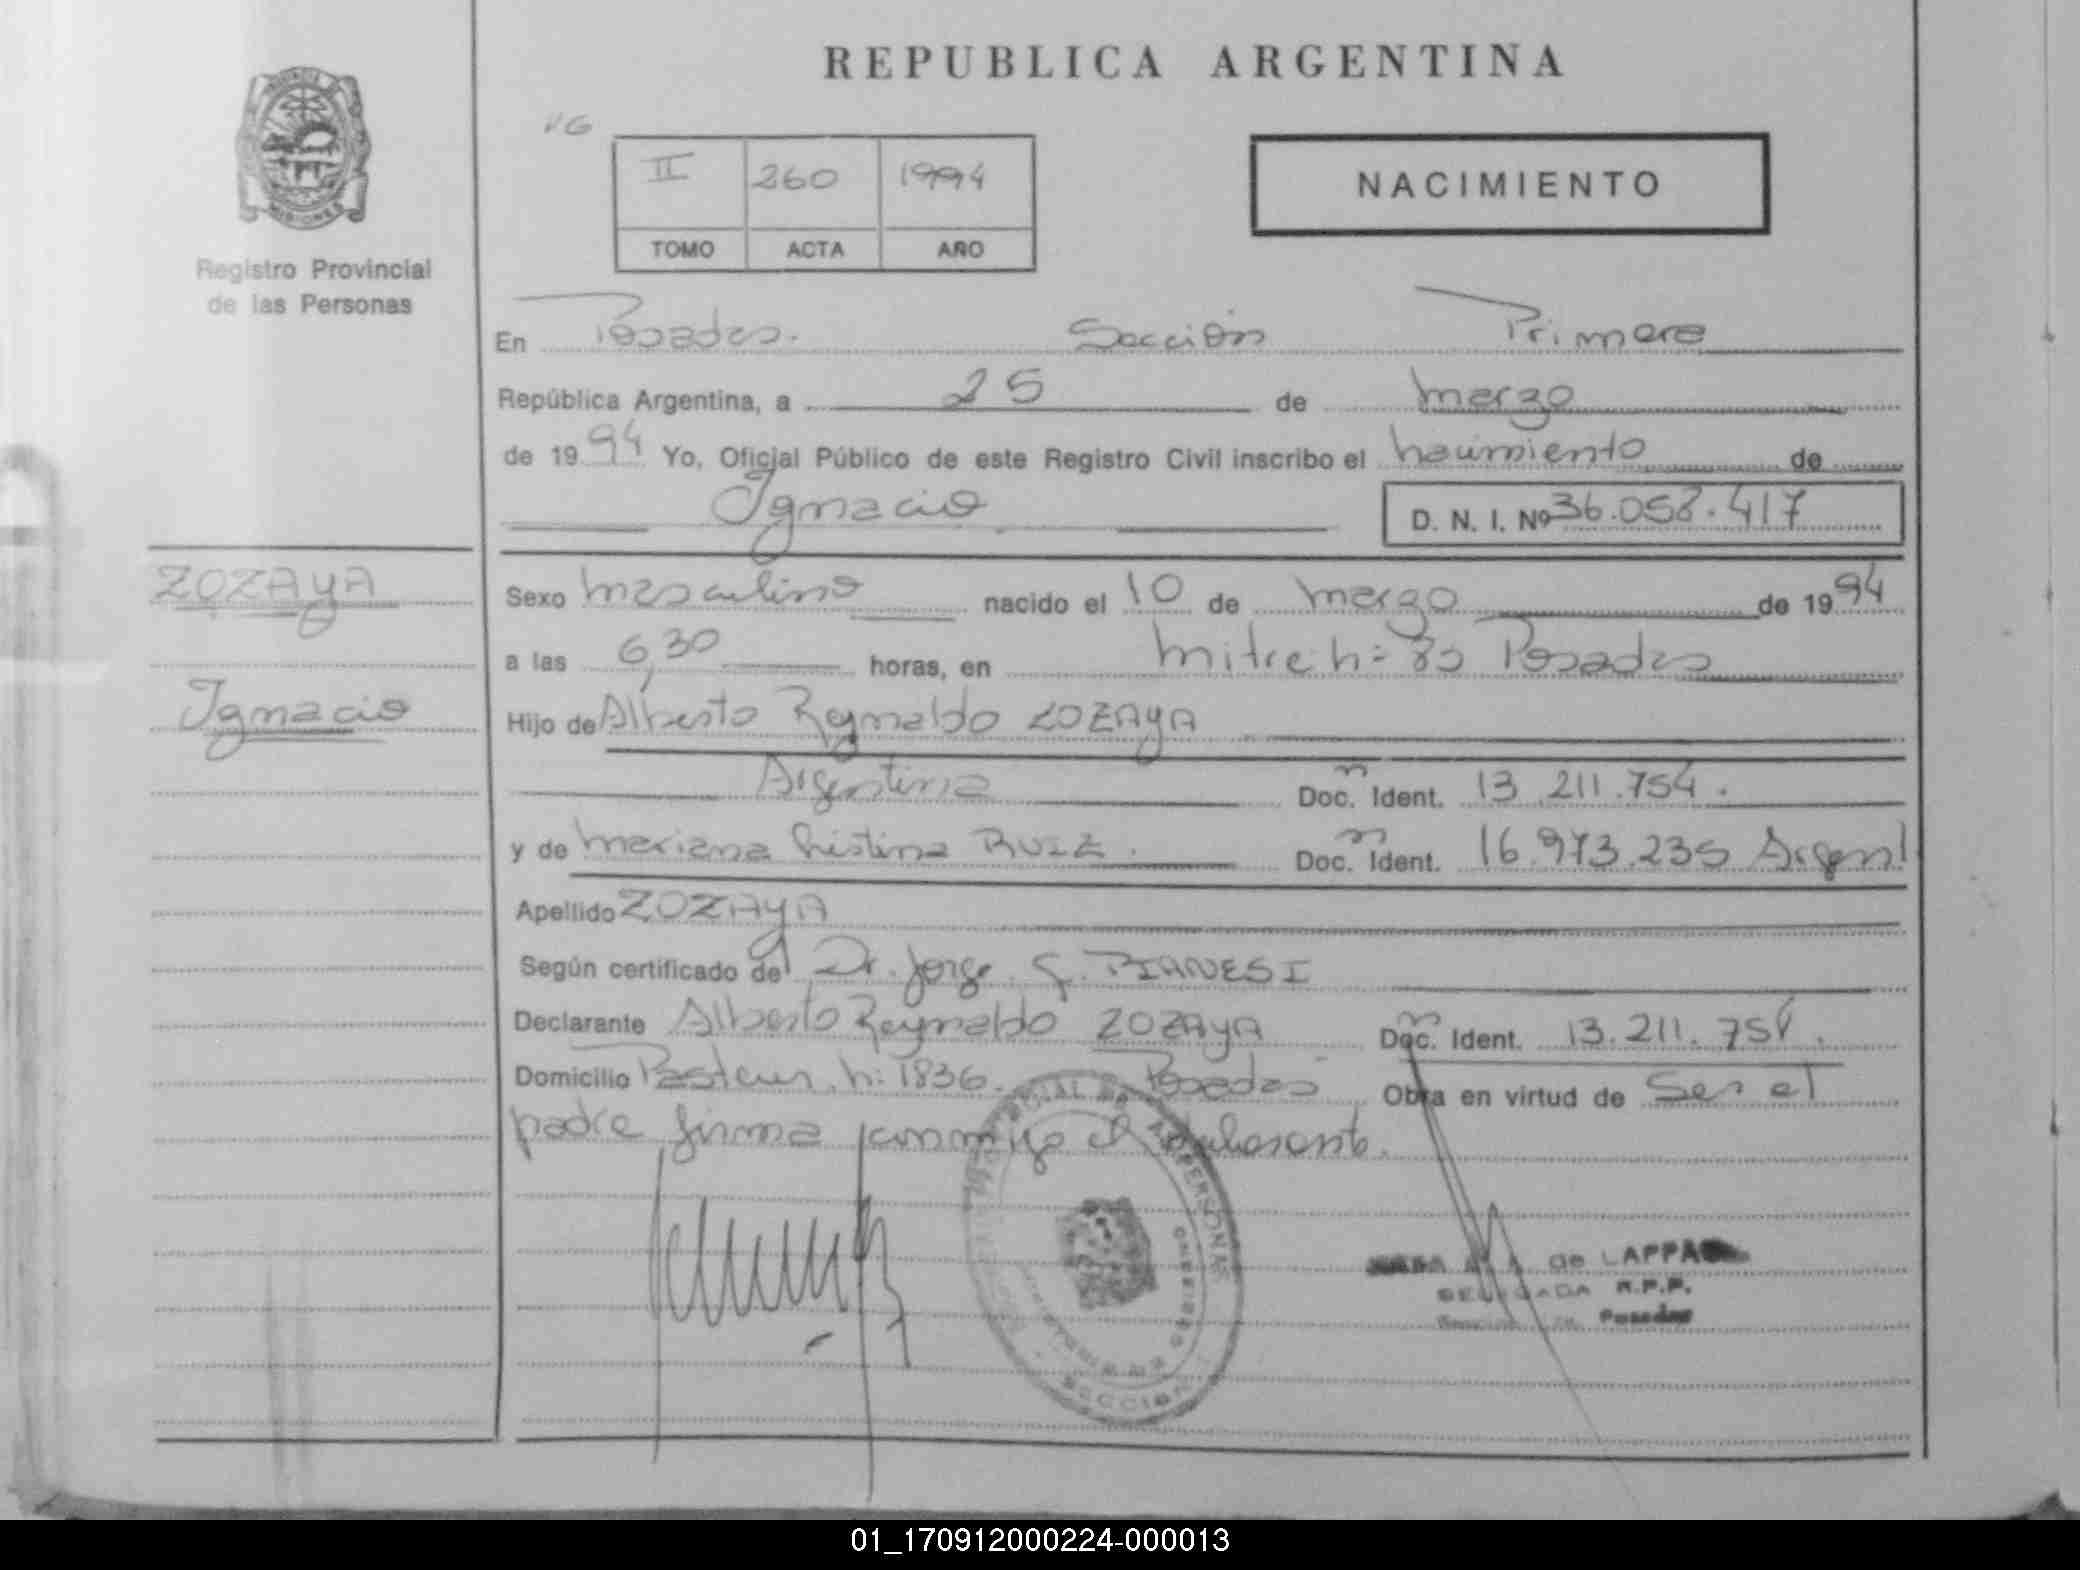 REPUBLICA ARGENTINA
PROVINCIA
MISIONES
Registro Provincial
de las Personas
II 260 1994
TOMO ACTA AÑO
NACIMIENTO
En Posadas. Sección Primera
República Argentina, a 25 de marzo
de 1994 Yo, Oficial Público de este Registro Civil inscribo el nacimiento de
Ignacio D. N. I. Nº 36.058.417
ZOZAYA
Ignacio
Sexo masculino nacido el 10 de marzo de 1994
a las 6,30 horas, en Mitre n= 85 Posadas
Hijo de Alberto Reynaldo ZOZAYA
Argentina Doc. Ident. 13.211.754.
y de Mariana Cristina RUIZ. Doc. Ident. 16.973.235 Argent
Apellido ZOZAYA
Según certificado de Dr. Jorge BIANESI
Declarante Alberto Reynaldo ZOZAYA Doc. Ident. 13.211.754.
Domicilio Pasteur n= 1836. Posadas Obra en virtud de Ser el
padre firma
de LAPPA
DELEGADA R.P.P.
Posadas
SECCION
01_170912000224-000013